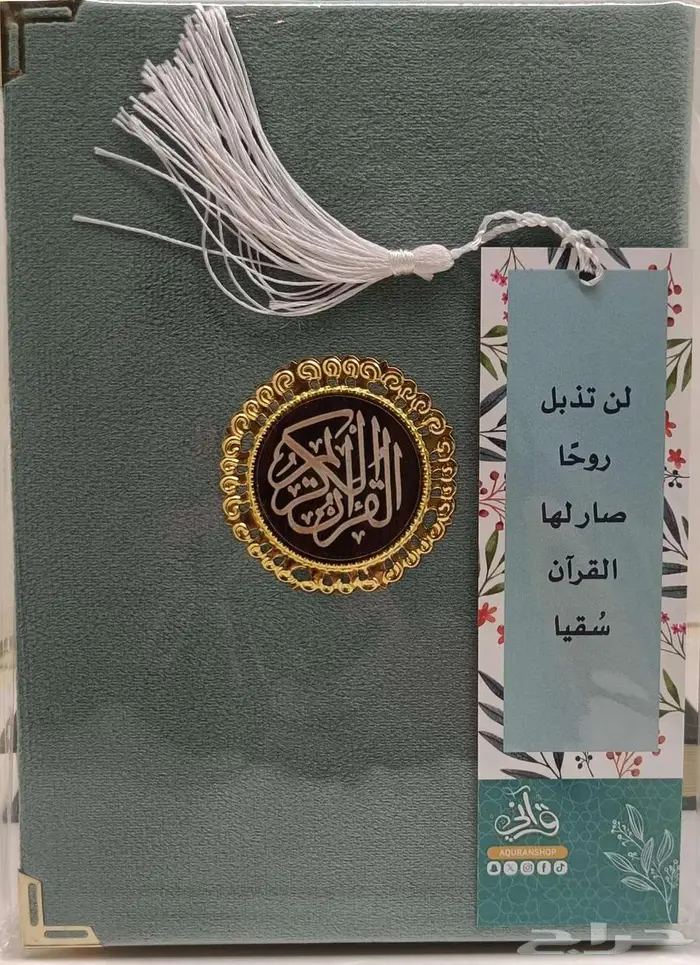 القرآن الكريم
لن تذبل
روحًا
صار لها
القرآن
سُقيا
قرآني
AQURANSHOP
حراج